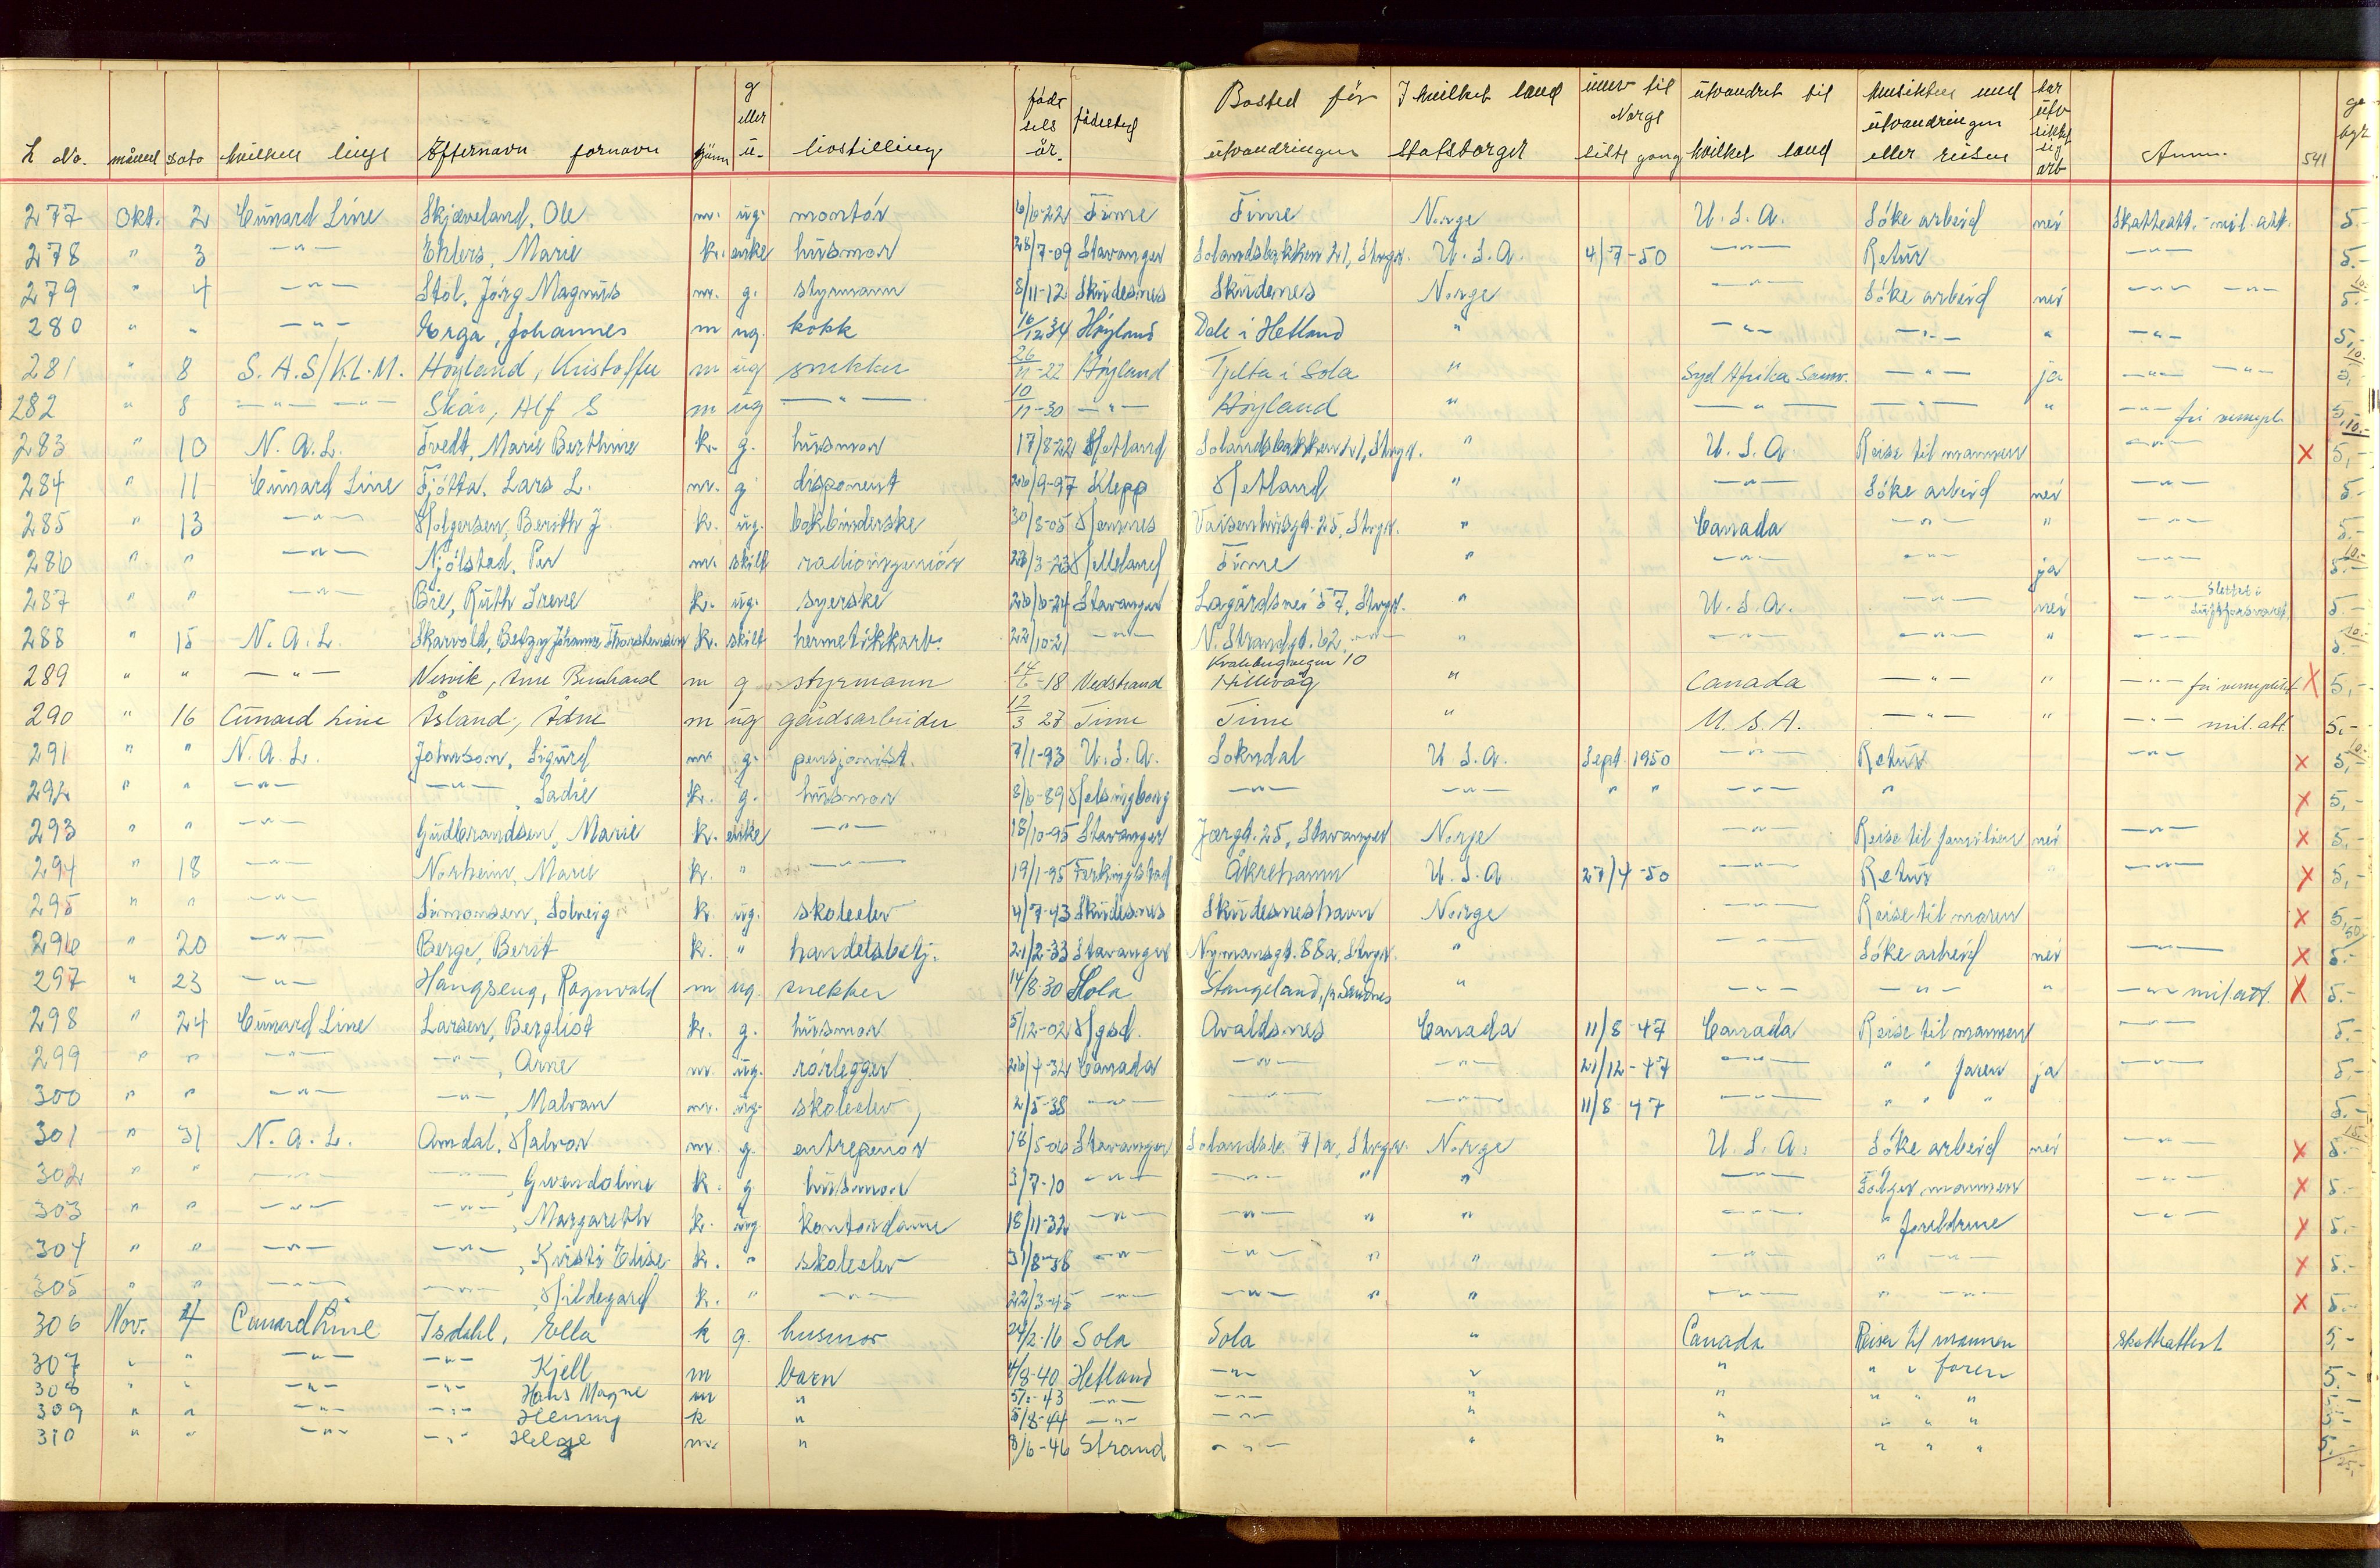 L No. måned Dato hvilken linje Efternavn fornavn kjønn g eller u- livstilling føds els år. fødested Bosted før utvandringen I hvilket land Statsborger innv til Norge siste gang utvandret til hvilket land hensikten med utvandringen eller reisen har utv sikket sig arb Anm. 541
277 Okt. 2 Cunard Line Skjæveland, Ole m. ug. montør 6/6-22 Time Time Norge U.S.A. Søke arbeid nei Skatteatt.- mil. att. 5-
278 " 3 -"- Ehlers, Marie k. enke husmor 28/7-09 Stavanger Solandsbakken 21, Stvgr. U.S.A. 4/7-50 -"- Retur -"- 5.-
279 " 4 -"- Støl, Jørg Magnus m. g. styrmann 8/11-12 Skudesnes Skudenes Norge -"- Søke arbeid nei -"- -"- 5.- 10.-
280 " " -"- Erga, Johannes m ug. kokk 16/12 34 Høyland Dale i Hetland " -"- -"- " -"- 5,-
281 " 8 S.A.S/K.L.M. Høyland, Kristoffer m ug snekker 26/11-22 Høyland Tjelta i Sola " Syd Afrika Samv. -"- ja -"- -"- 5,- 10.-
282 " 8 -"- -"- Skår, Alf S m ug -"- 10/11-30 -"- Høyland " -"- -"- " -"- fri vernepl. 5,- 10.-
283 " 10 N.A.L. Tvedt, Marie Berthine k. g. husmor 17/8-22 Hetland Solandsbakken 21, Stvgr. " U.S.A. Reise til mannen -"- x 5,-
284 " 11 Cunard Line Tjøtta, Lars L. m. g. disponent 26/9-97 Klepp Hetland " -"- Søke arbeid nei -"- 5-
285 " 13 -"- Holgersen, Berith J. k. ug. bokbinderske 30/8-05 Hennes Vaisenhusgt. 25, Stvgr. " Canada -"- " -"- 5.-
286 " " -"- Njølstad, Per m. skilt radioingeniør 28/3-23 Helleland Time " -"- -"- ja -"- 5.- 10.-
287 " " -"- Bie, Ruth Irene k. ug. syerske 26/6-24 Stavanger Lagårdsvei 57, Stvgr. " U.S.A. -"- nei -"- Slettet i Luftforsvaret. 5.-
288 " 15 N.A.L. Skarvold, Betzy Johanne Thorstensen k. skilt hermetikkarb. 22/10-21 -"- N. Strandgt. 62. -"- " -"- -"- " -"- 5.- 10.-
289 " " -"- Nesvik, Arne Bernhard m g styrmann 14/6-18 Vedstrand Kvalebergveien 10 Hillevåg " Canada -"- " -"- fri verneplikt X 5,-
290 " 16 Cunard Line Åsland, Ådne m ug gårdsarbeider 12/3 27 Time Time " U.S.A. -"- " -"- mil. att. 5.-
291 " " N.A.L. Johnson, Sigurd m g. pensjonist. 7/1-93 U.S.A. Sokndal U.S.A. Sept. 1950 -"- Retur -"- x 5,- 10.-
292 " " -"- -"- , Sadie k. g. husmor 8/6-89 Helsingborg -"- -"- " " -"- " x 5,-
293 " " -"- Gudbrandsen, Marie k. enke -"- 18/10-95 Stavanger Jærgt. 25, Stavanger Norge -"- Reise til familien nei -"- x 5,-
294 " 18 -"- Norheim, Marie k. " -"- 19/1-95 Ferkingstad Åkrehamn U.S.A. 27/4-50 -"- Retur -"- x 5,-
295 " " -"- Simonsen, Solveig k. ug. skoleelev 4/7-43 Skudesnes Skudesneshavn Norge -"- Reise til moren x 5,-
296 " 20 -"- Berge, Berit k. " handelsbetj. 21/2-33 Stavanger Nymansgt. 88a, Stvgr. " -"- Søke arbeid nei -"- x 5.- 50
297 " 23 -"- Haugseng, Ragnvald m ug. snekker 14/8-30 Sola Stangeland, pr. Sandnes " -"- -"- " -"- mil. att. X 5.-
298 " 24 Cunard Line Larsen, Berglist k. g. husmor 5/12-02 Hgsd. Avaldsnes Canada 11/8-47 Canada Reise til mannen -"- 5.-
299 " " -"- -"- , Arne m. ug. rørlegger 26/4-32 Canada -"- -"- 21/12-47 -"- " " faren ja -"- 5,-
300 " " -"- -"- , Malvan m. ug. skoleelev 2/5-38 -"- -"- -"- 11/8-47 -"- " " " 5.-
301 " 31 N.A.L. Amdal, Halvor m. g. entreprenør 18/5-06 Stavanger Solandsb. 71a, Stvgr. Norge U.S.A. Søke arbeid nei -"- x 5.- 15.-
302 " " -"- -"- , Gwendoline k. g husmor 3/7-10 -"- -"- " " -"- Følger mannen -"- x 5.-
303 " " -"- -"- , Margareth k. ug. kontordame 18/11-32 -"- -"- " " -"- " foreldrene -"- x 5.-
304 " " -"- -"- , Kristi Elise k. " skoleelev 31/8-38 -"- -"- " " -"- " -"- x 5.-
305 " " -"- -"- , Hildegard k. " -"- 22/3-45 -"- -"- " " -"- " -"- x 5.-
306 Nov. 4 Cunard Line Isdahl, Ella k g. husmor 24/2-16 Sola Sola " Canada Reiser til mannen Skatteattest 5,-
307 " " -"- -"- Kjell m barn 4/8-40 Hetland -"- " " " " faren 5.-
308 " " -"- -"- Hans Magne m " -43 -"- -"- " " " " " 5.-
309 " " -"- -"- Henny k " 5/8-44 -"- -"- " " " " " 5.-
310 " " -"- -"- Helge m. " 8/6-46 Strand -"- " " " " " 5.- 25,-